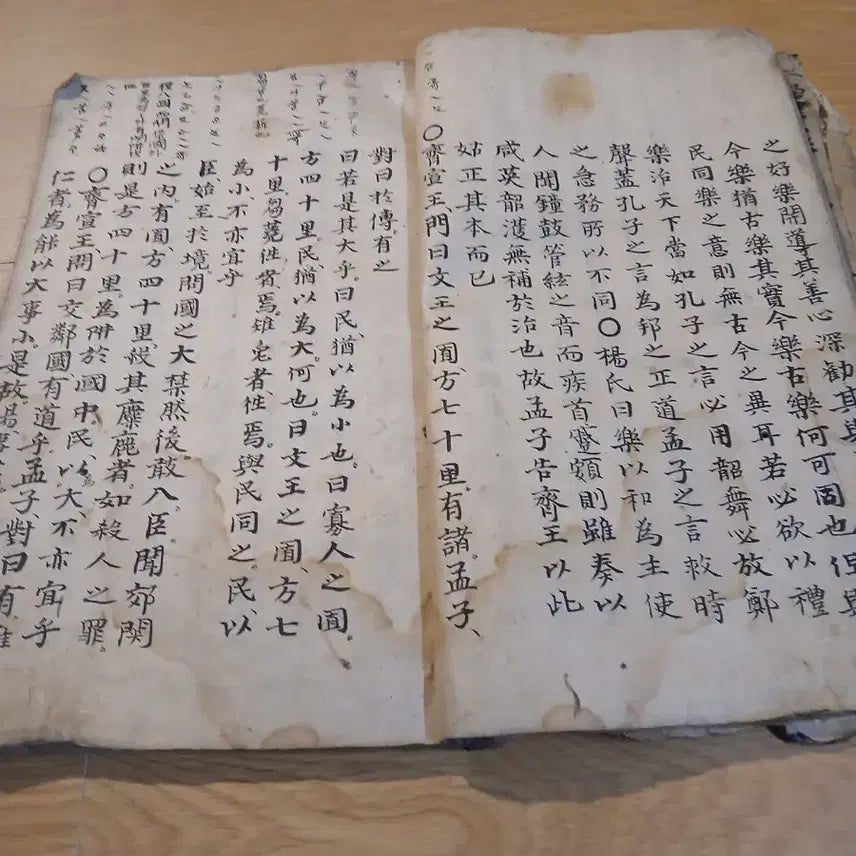 之好樂開導其善心深勸其與
今樂猶古樂其實今樂古樂何可同也但與
民同樂之意則無古今之異耳若必欲以禮
樂治天下當如孔子之言必用韶舞必放鄭
聲蓋孔子之言為邦之正道孟子之言救時
之急務所以不同〇楊氏曰樂以和為主使
人聞鐘鼓管絃之音而疾首蹙頞則雖奏以
咸英韶濩無補於治也故孟子告齊王以此
姑正其本而已
〇齊宣王、問曰文王之囿、方七十里。有諸。孟子、
對曰於傳有之
曰若是其大乎。曰民、猶以為小也。曰寡人之囿。
方四十里、民、猶以為大、何也。曰文王之囿、方七
十里、芻蕘、往者焉。雉兔者、往焉。與民同之。民、以
為小、不亦宜乎
臣始至於境。問國之大禁、然後、敢入。臣聞郊関
之內。有囿、方四十里、殺其麋鹿者、如殺人之罪。
則是方四十里。為阱於國中。民、以為大、不亦宜乎
〇齊宣王、問曰交鄰國、有道乎。孟子對曰有。惟
仁者、為能以大事小。是故、湯事